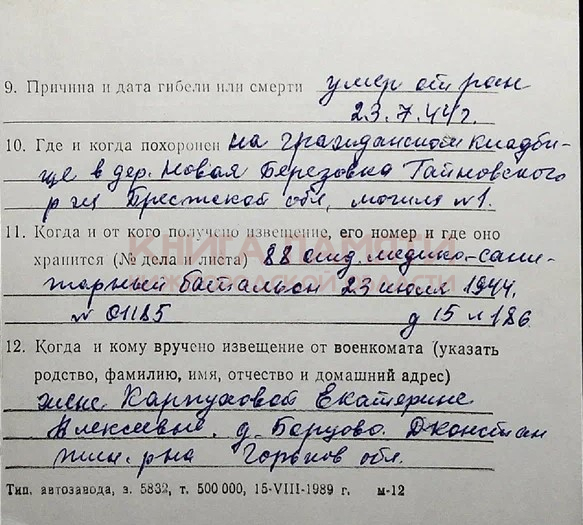 9. Причина и дата гибели или смерти умер от ран
23.7.44г.
10. Где и когда похоронен на гражданском кладби-
ще в дер. Новая Березовка Гайновского
р на Брестской обл, могила №1.
11. Когда и от кого получено извещение, его номер и где оно
хранится (№ дела и листа) 88 отд. медико-сани-
тарный батальон 23 июля 1944.
№ 01185 д 15 л 186
12. Когда и кому вручено извещение от военкомата (указать
родство, фамилию, имя, отчество и домашний адрес)
жене Карпуховой Екатерине
Алексеевне. д. Борцово. Дконстан
тин. р на Горьков обл.
Тип. автозавода, з. 5832, т. 500 000, 15-VIII-1989 г. м-12
КНИГА ПАМЯТИ
НИЖЕГОРОДСКОЙ ОБЛАСТИ